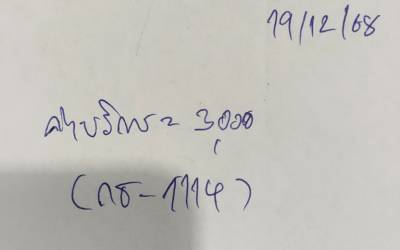 19/12/68
ค่าบริการ = 3,000
(กธ-1114)